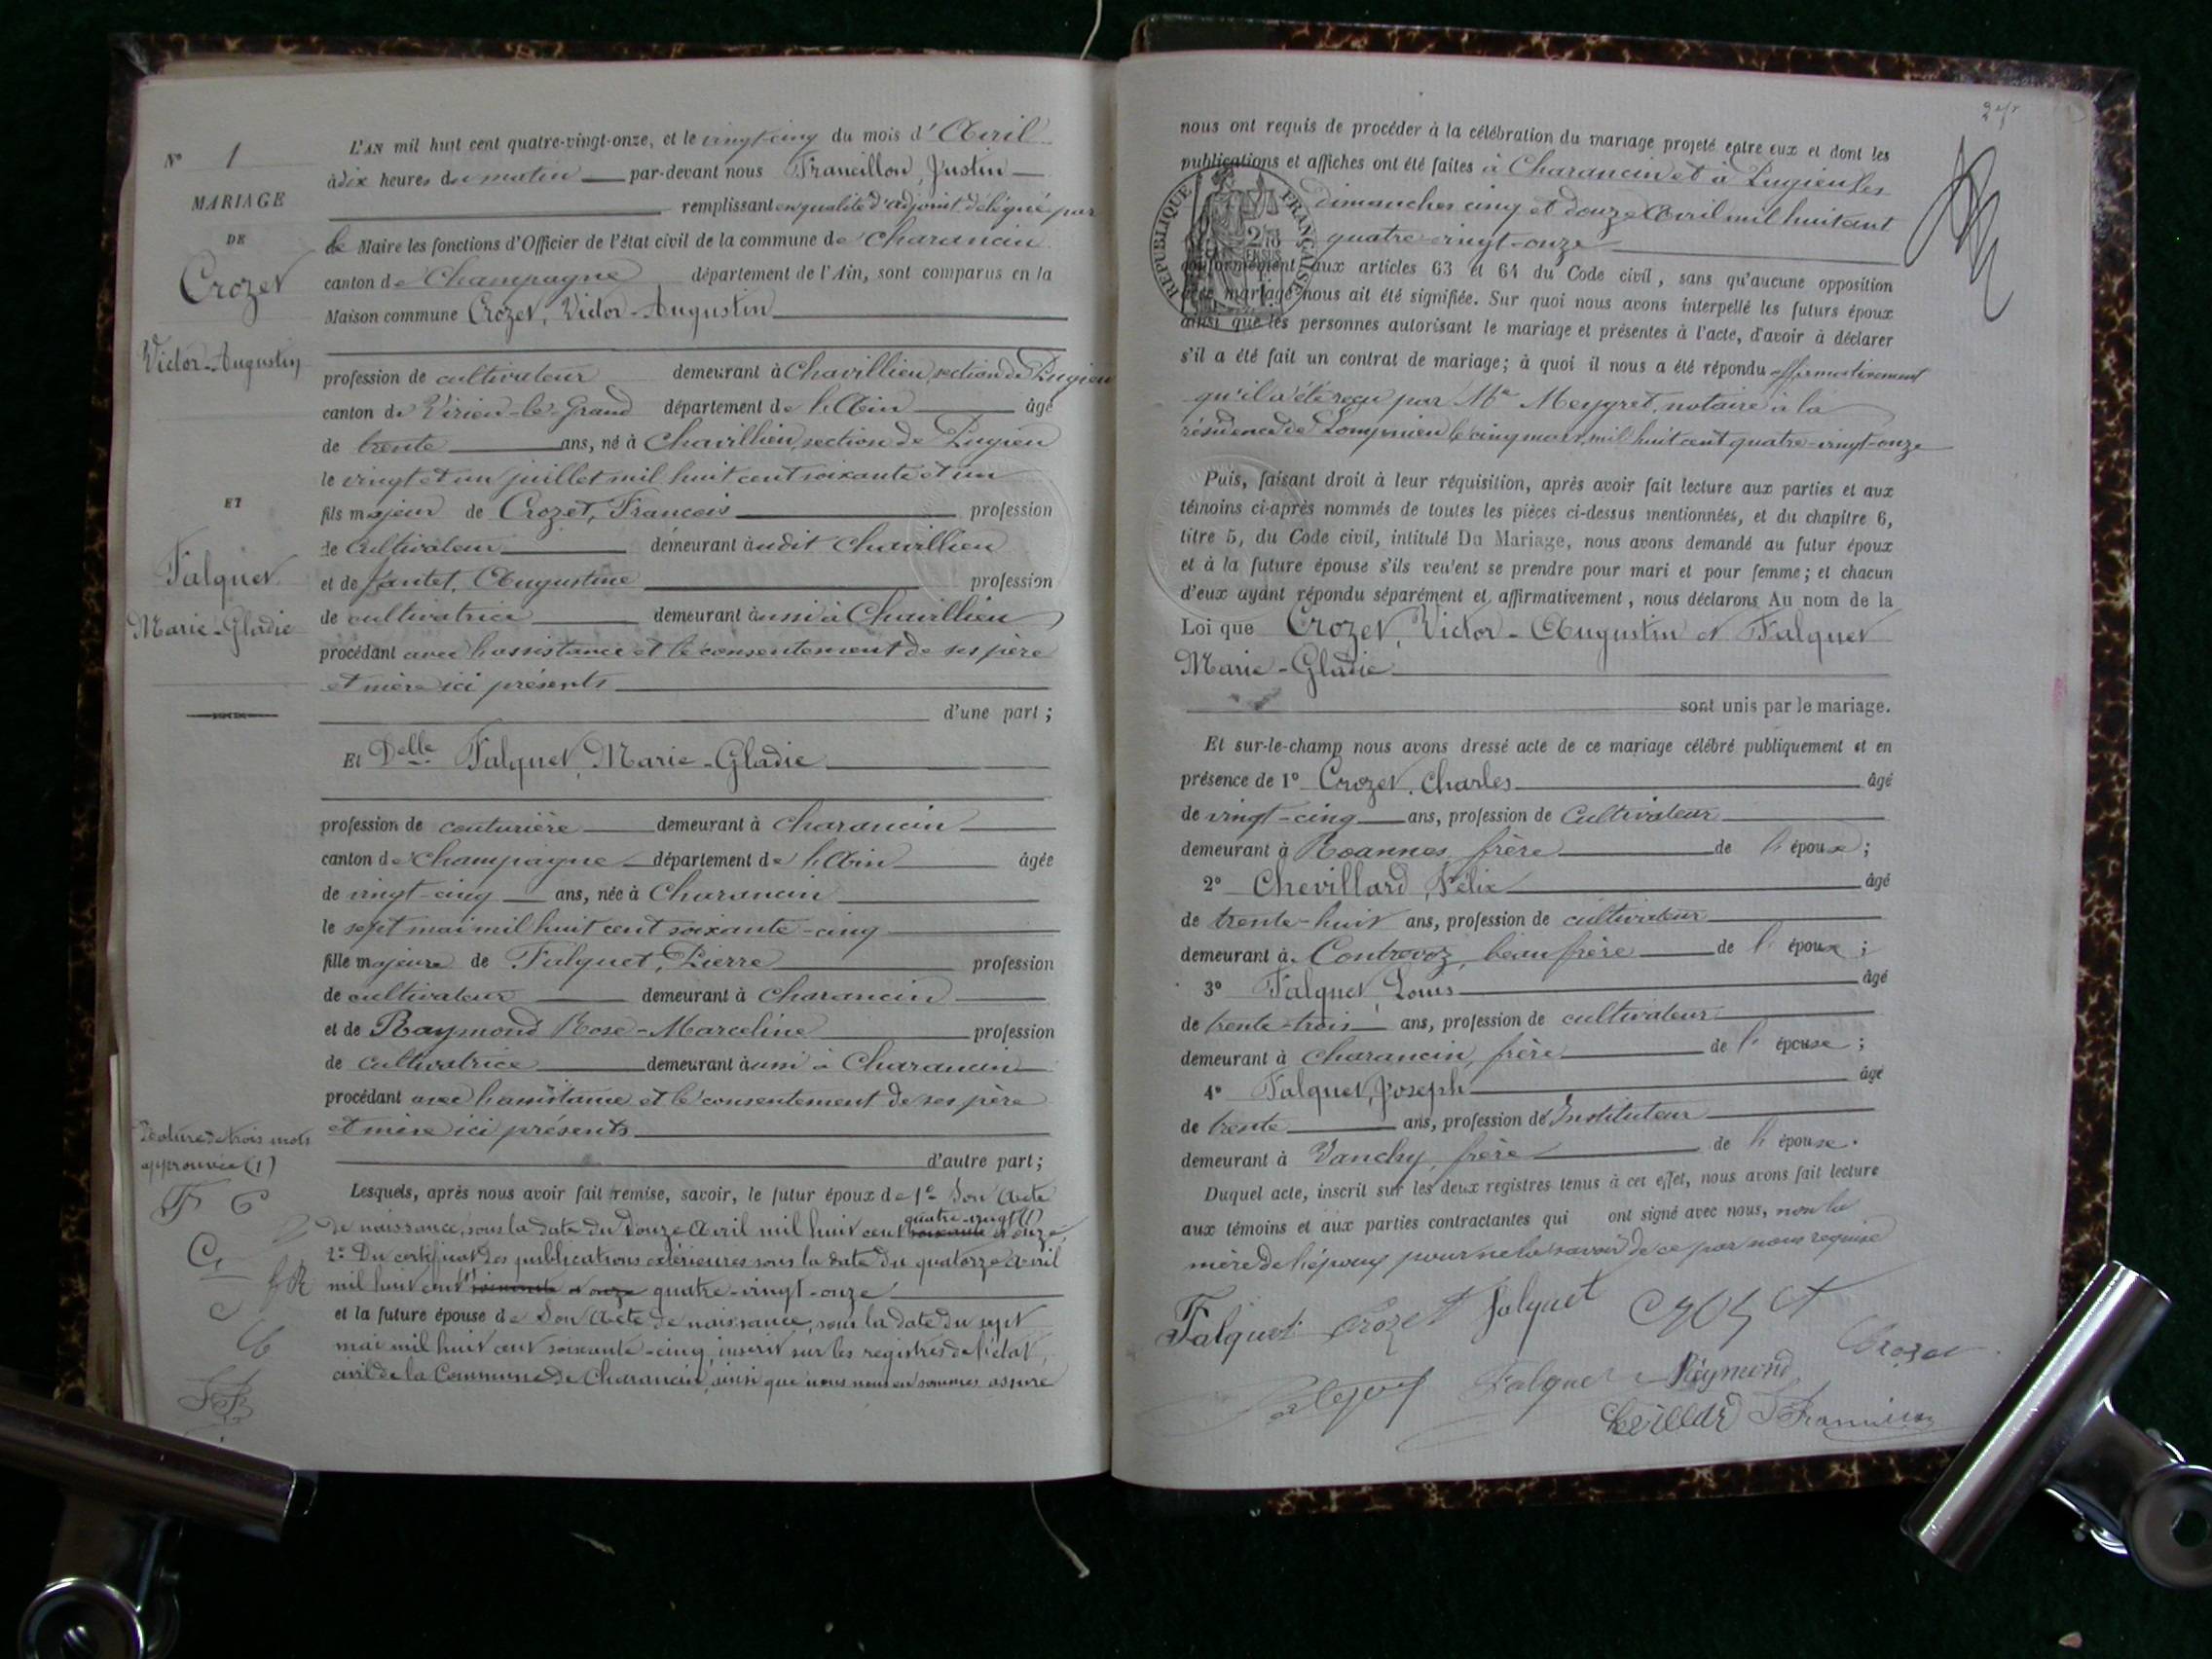 N° 1
MARIAGE
DE
Crozet
Victor-Augustin
ET
Falquet
Marie-Gladie
L'AN mil huit cent quatre-vingt-onze, et le vingt-cinq du mois d'Avril
à dix heures du matin par-devant nous Francillon, Justin
remplissant en qualité d'adjoint délégué par
le Maire les fonctions d'Officier de l'état civil de la commune de Charancin
canton de Champagne département de l'Ain, sont comparus en la
Maison commune Crozet, Victor-Augustin
profession de cultivateur demeurant à Chavillieu, section de Pugieu
canton de Virieu-le-Grand département de l'Ain âgé
de trente ans, né à Chavillieu, section de Pugieu
le vingt et un juillet mil huit cent soixante et un
fils majeur de Crozet, François profession
de cultivateur demeurant audit Chavillieu
et de Jantet, Augustine profession
de cultivatrice demeurant aussi à Chavillieu
procédant avec l'assistance et le consentement de ses père
et mère ici présents
d'une part ;
Et Delle Falquet, Marie-Gladie
profession de couturière demeurant à Charancin
canton de Champagne département de l'Ain âgée
de vingt-cinq ans, née à Charancin
le sept mai mil huit cent soixante-cinq
fille majeure de Falquet, Pierre profession
de cultivateur demeurant à Charancin
et de Raymond Rose-Marceline profession
de cultivatrice demeurant aussi à Charancin
procédant avec l'assistance et le consentement de ses père
et mère ici présents
d'autre part ;
de trois mots
approuvée (1)
Lesquels, après nous avoir fait remise, savoir, le futur époux de 1° Son Acte
quatre-vingt (1)
de naissance, sous la date du douze Avril mil huit cent soixante et onze,
2° Du certificat des publications extérieures sous la date du quatorze Avril
mil huit cent soixante et onze quatre-vingt-onze
et la future épouse de Son Acte de naissance, sous la date du sept
mai mil huit cent soixante-cinq, inscrit sur les registres de l'état
civil de la Commune de Charancin, ainsi que nous nous en sommes assuré
nous ont requis de procéder à la célébration du mariage projeté entre eux et dont les
publications et affiches ont été faites à Charancin et à Pugieu les
dimanches cinq et douze Avril mil huit cent
quatre-vingt-onze
RÉPUBLIQUE FRANÇAISE
conformément aux articles 63 et 64 du Code civil, sans qu'aucune opposition
audit mariage nous ait été signifiée. Sur quoi nous avons interpellé les futurs époux
ainsi que les personnes autorisant le mariage et présentes à l'acte, d'avoir à déclarer
s'il a été fait un contrat de mariage; à quoi il nous a été répondu affirmativement
qu'il a été reçu par Me Meygret, notaire à la
résidence de Lompnieu le cinq mars mil huit cent quatre-vingt-onze
Puis, faisant droit à leur réquisition, après avoir fait lecture aux parties et aux
témoins ci-après nommés de toutes les pièces ci-dessus mentionnées, et du chapitre 6,
titre 5, du Code civil, intitulé Du Mariage, nous avons demandé au futur époux
et à la future épouse s'ils veulent se prendre pour mari et pour femme; et chacun
d'eux ayant répondu séparément et affirmativement, nous déclarons Au nom de la
Loi que Crozet, Victor-Augustin et Falquet
Marie-Gladie
sont unis par le mariage.
Et sur-le-champ nous avons dressé acte de ce mariage célébré publiquement et en
présence de 1° Crozet, Charles âgé
de vingt-cinq ans, profession de Cultivateur
demeurant à Roannes, frère de l'époux ;
2° Chevillard, Félix âgé
de trente-huit ans, profession de cultivateur
demeurant à Contrevoz, beau frère de l'époux ;
3° Falquet, Louis âgé
de trente-trois ans, profession de cultivateur
demeurant à Charancin, frère de l'épouse ;
4° Falquet, Joseph âgé
de trente ans, profession d'Instituteur
demeurant à Vanchy, frère de l'épouse.
Duquel acte, inscrit sur les deux registres tenus à cet effet, nous avons fait lecture
aux témoins et aux parties contractantes qui ont signé avec nous, non la
mère de l'époux pour ne le savoir de ce par nous requise
Falquet Crozet Falquet Crozet
Crozet
Falquet Raymond